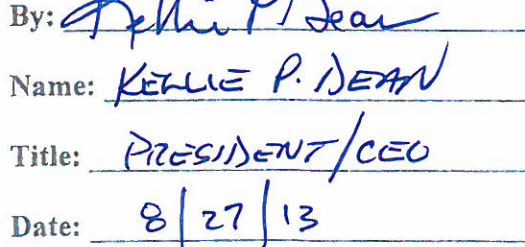 By: Kellie P Dean
Name: KELLIE P. DEAN
Title: PRESIDENT/CEO
Date: 8/27/13